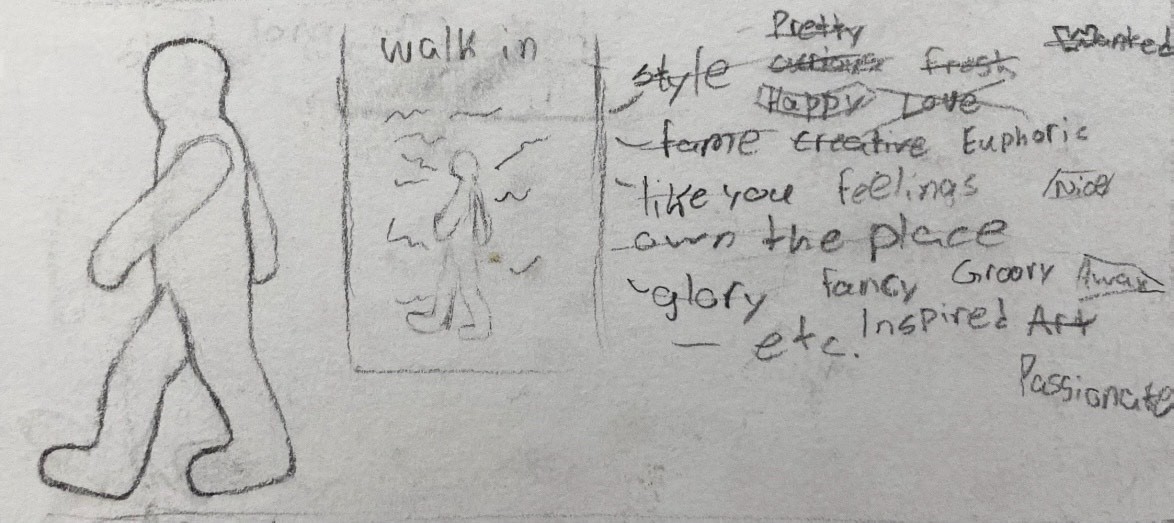 walk in
Pretty
style curious Fresh Wanted
Happy Love
- fame creative Euphoric
- like you feelings Nice
own the place
- glory fancy Groovy Away
- etc. Inspired Art
Passionate